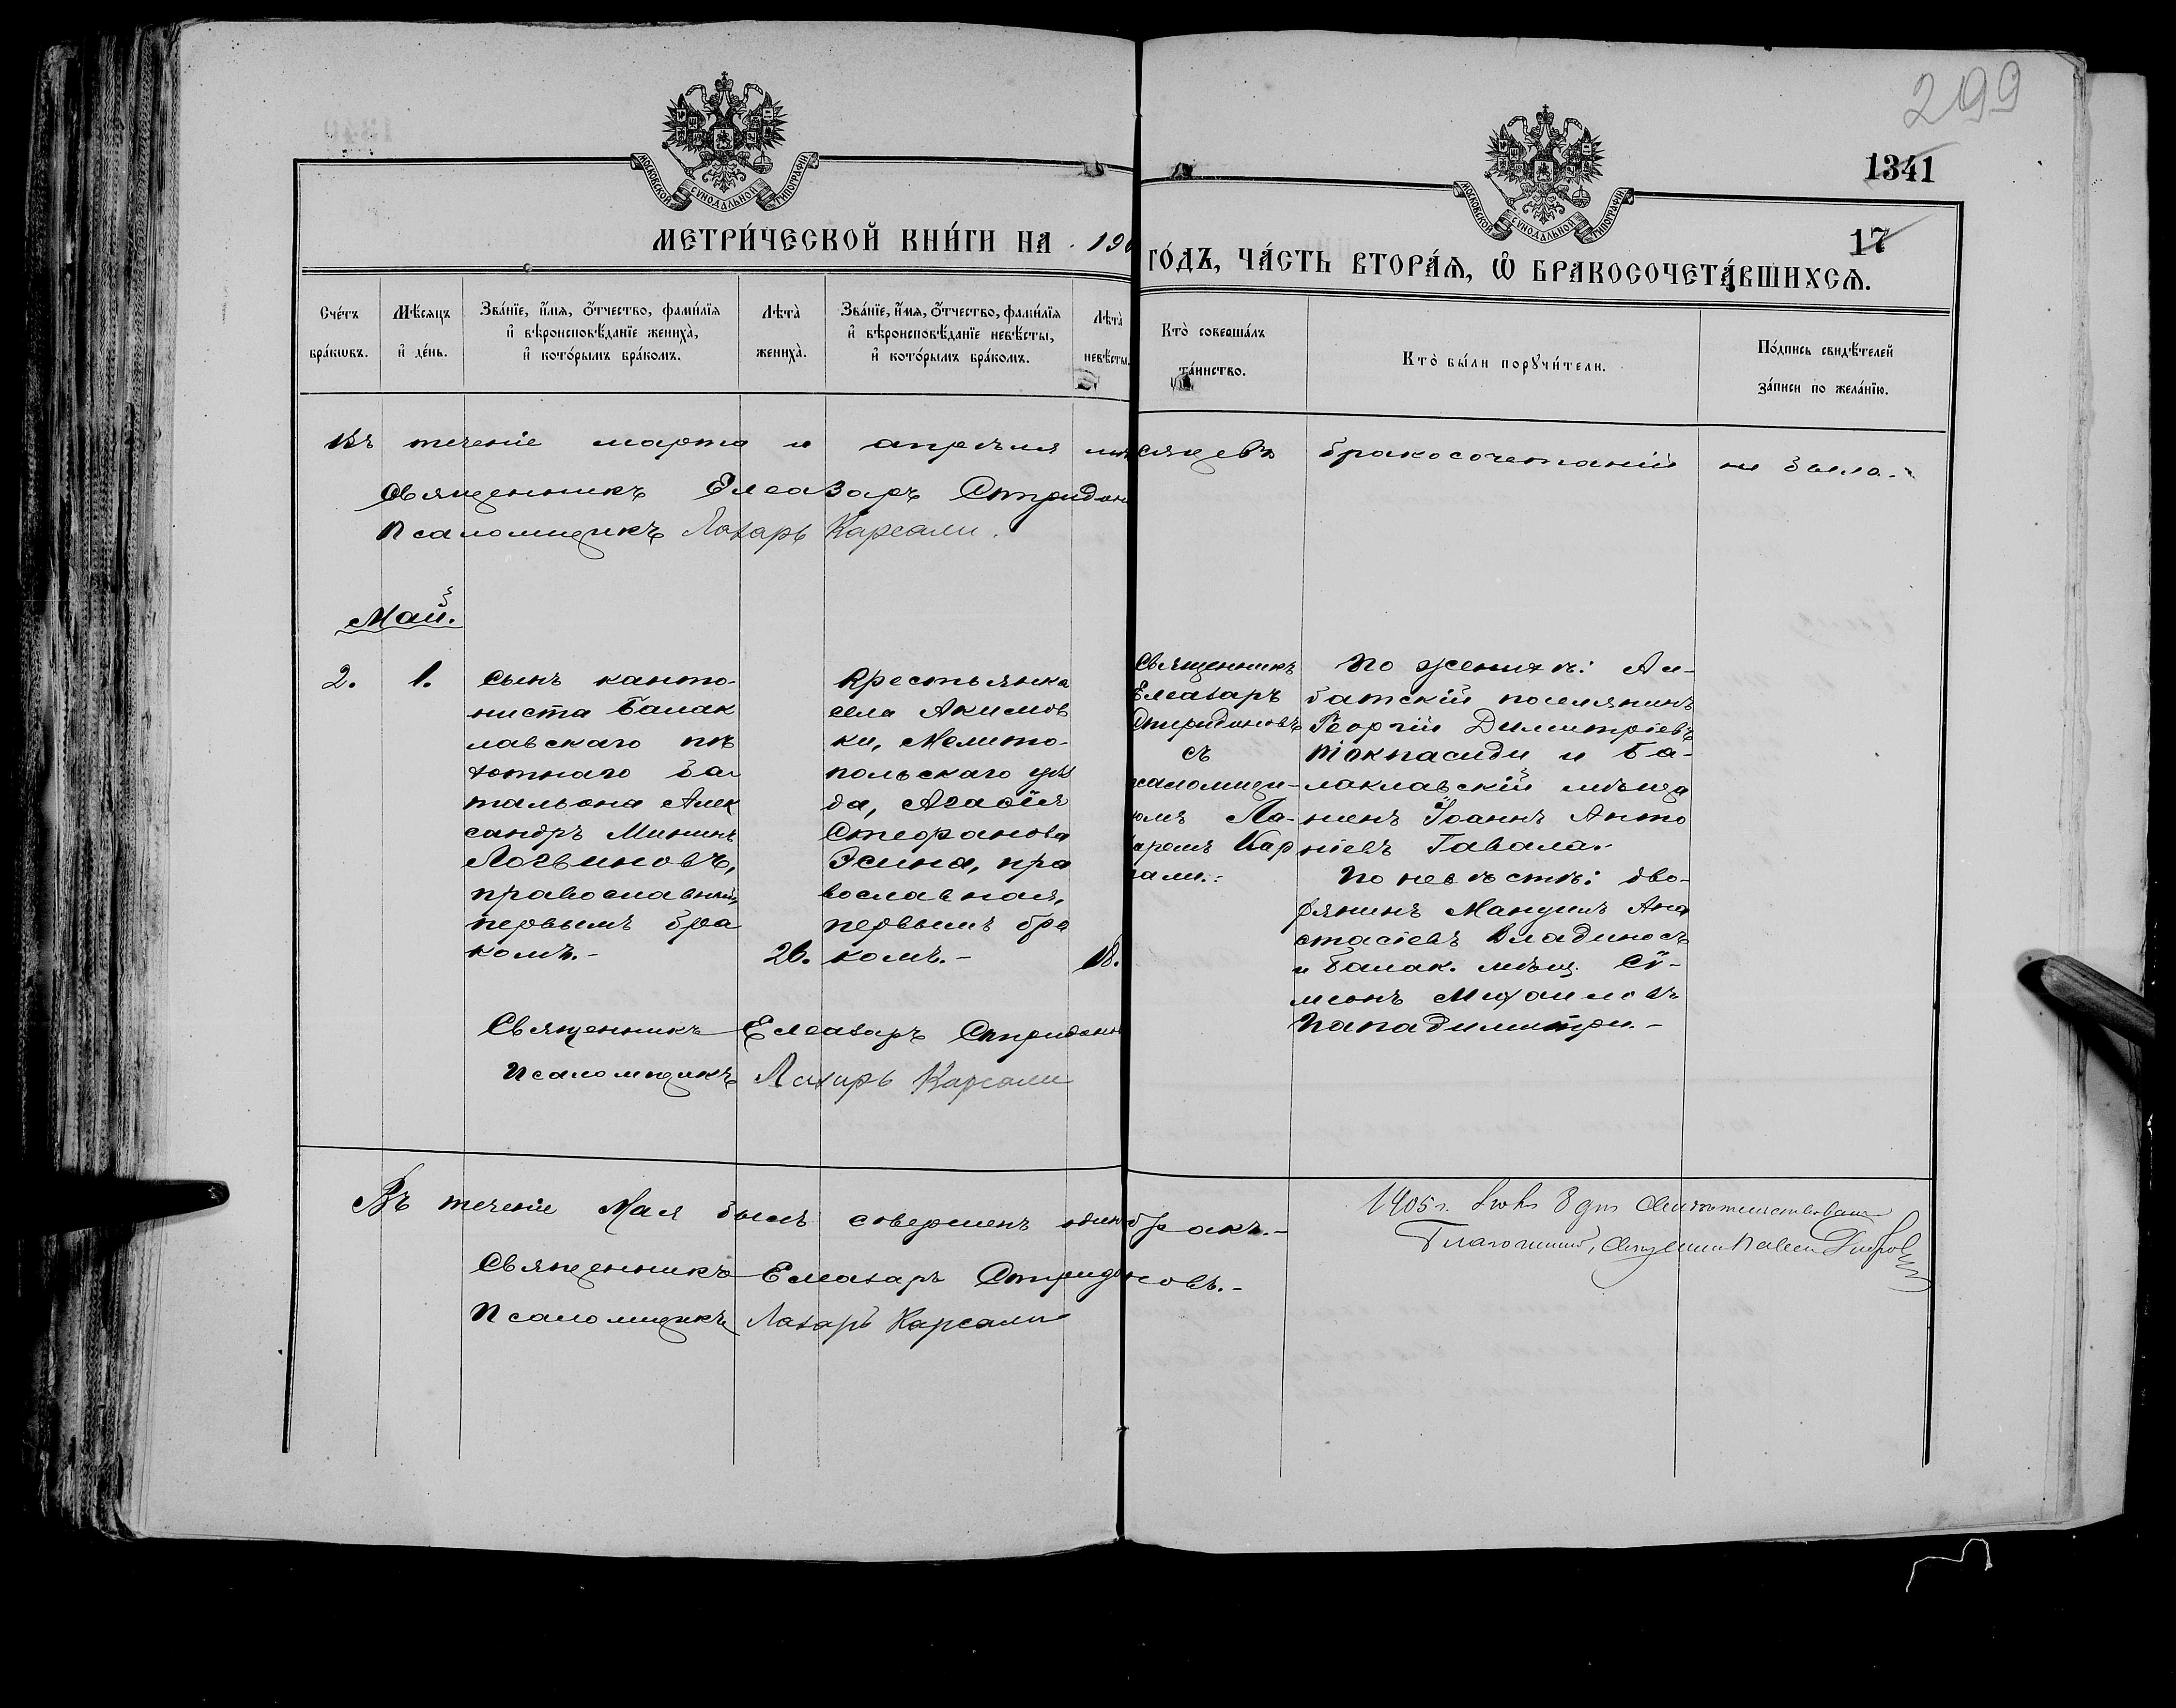 299
1341
17
МОСКОВСКОЙ СѴНОДАЛЬНОЙ ТИПОГРАФІИ
МОСКОВСКОЙ СѴНОДАЛЬНОЙ ТИПОГРАФІИ
МЕТРИ́ЧЕСКОЙ КНИ́ГИ НА 190
ГО́ДЪ, ЧА́СТЬ ВТОРА́Ѧ, Ѽ БРАКОСОЧЕТА́ВШИХСѦ.
Сче́тъ
бра́кѡвъ.
Мѣ́сяцъ
и҆ де́нь.
Зва́нїе, и҆́мѧ, ѻ҆́тчество, фами́лїѧ
и҆ вѣроисповѣ́данїе жениха̀,
и҆ кото́рымъ бра́комъ.
Лѣта̀
жениха̀.
Зва́нїе, и҆́мѧ, ѻ҆́тчество, фами́лїѧ
и҆ вѣроисповѣ́данїе невѣ́сты,
и҆ кото́рымъ бра́комъ.
Лѣта̀
невѣ́сты.
Кто̀ соверша́лъ
та́инство.
Кто̀ бы́ли порꙋчи́тели.
По́дпись свидѣ́телей
за́писи по жела́нїю.
Въ теченіе марта и апрѣля мѣсяцевъ бракосочетаній не было.
Священникъ Елеазаръ Спиридон
Псаломщикъ Лазарь Карсали.
Май.
2. 1.
Сынъ канто-
ниста Балак
лавскаго пѣ
хотнаго ба
тальона Алек
сандръ Мининъ
Логвиновъ,
православный,
первымъ бра
комъ.-
26.
Крестьянка
села Акимов
ки, Мелито-
польскаго уѣз
да, Агафія
Стефанова
Эсина, пра
вославная,
первымъ бра
комъ.-
18.
Священникъ
Елеазаръ
Спиридоновъ
съ
псаломщи-
комъ Ла-
заремъ Кар
сали.:
По женихѣ: Ал-
батскій поселянинъ
Георгій Димитріевъ
Токпасиди и Ба-
лаклавскій мѣща
нинъ Іоаннъ Анто
ніевъ Гавала.
По невѣстѣ: дво-
рянинъ Мануилъ Ана
стасіевъ Владиносъ
и балак. мѣщ. Сѵ-
меонъ Михаиловъ
Пападимитри.-
Священникъ Елеазаръ Спиридонов
Псаломщикъ Лазарь Карсали
Въ теченіе Мая былъ совершенъ одинъ бракъ.-
Священникъ Елеазаръ Спиридоновъ.-
Псаломщикъ Лазарь Карсали
1905 г. 8 дня свидѣтельствовалъ
Благочинный, Священникъ Павел